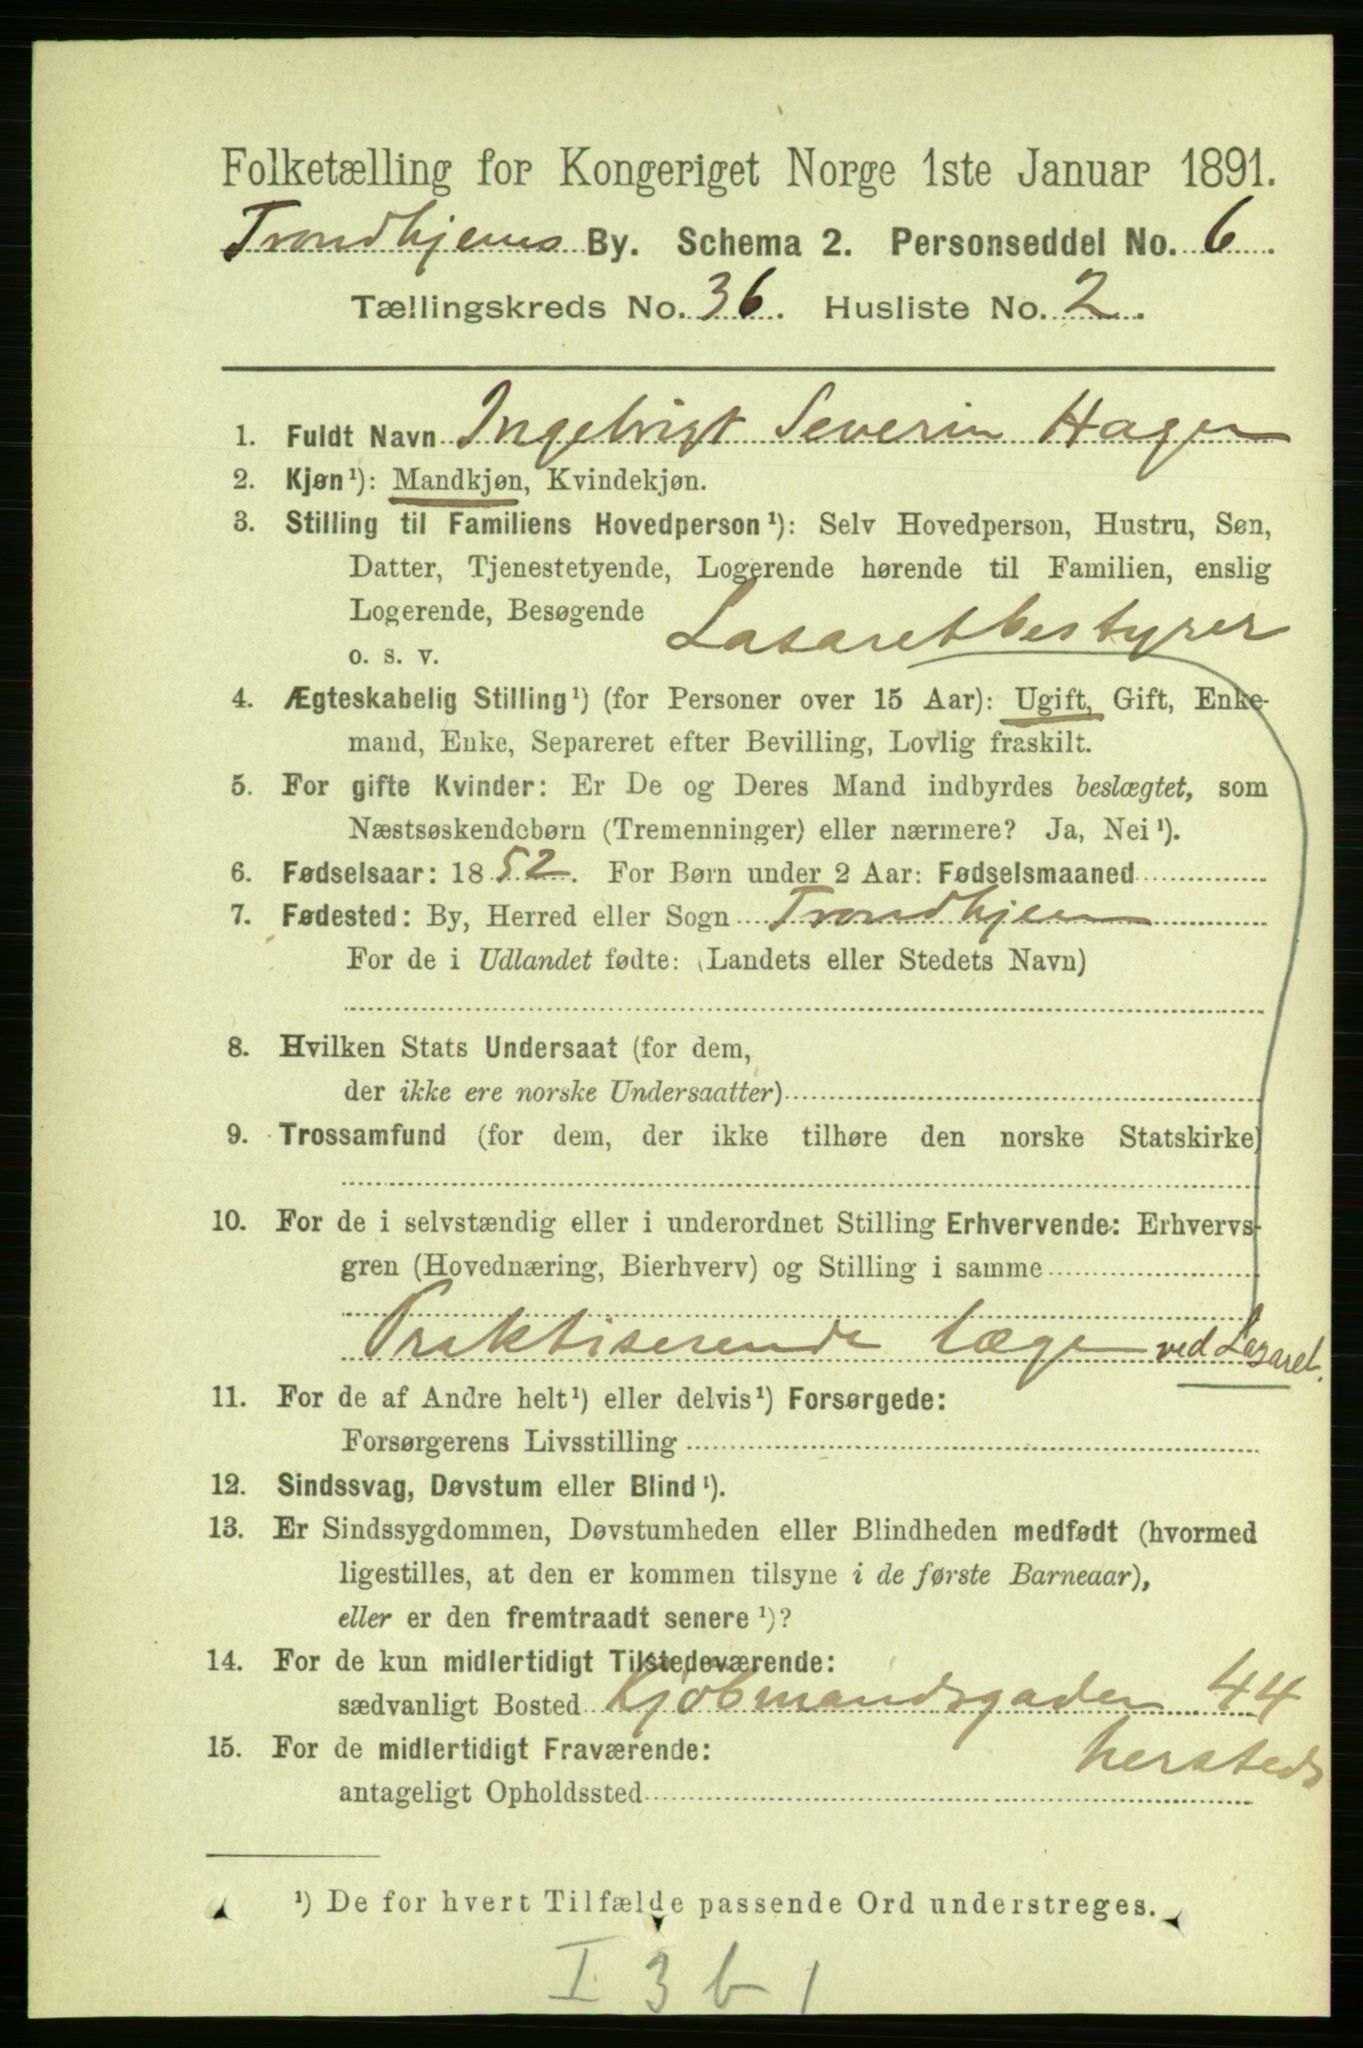 Folketælling for Kongeriget Norge 1ste Januar 1891.
Trondhjems By. Schema 2. Personseddel No. 6.
Tællingskreds No. 36. Husliste No. 2.
1. Fuldt Navn Ingebrigt Severin Hagen
2. Kjøn¹): Mandkjøn, Kvindekjøn.
3. Stilling til Familiens Hovedperson¹): Selv Hovedperson, Hustru, Søn,
Datter, Tjenestetyende, Logerende hørende til Familien, enslig
Logerende, Besøgende
o. s. v. Lasaretbestyrer
4. Ægteskabelig Stilling¹) (for Personer over 15 Aar): Ugift, Gift, Enke-
mand, Enke, Separeret efter Bevilling, Lovlig fraskilt.
5. For gifte Kvinder: Er De og Deres Mand indbyrdes beslægtet, som
Næstsøskendebørn (Tremenninger) eller nærmere? Ja, Nei¹).
6. Fødselsaar: 1852. For Børn under 2 Aar: Fødselsmaaned
7. Fødested: By, Herred eller Sogn Trondhjem
For de i Udlandet fødte: (Landets eller Stedets Navn)
8. Hvilken Stats Undersaat (for dem,
der ikke ere norske Undersaatter)
9. Trossamfund (for dem, der ikke tilhøre den norske Statskirke)
10. For de i selvstændig eller i underordnet Stilling Erhvervende: Erhvervs-
gren (Hovednæring, Bierhverv) og Stilling i samme
Praktiserende læge ved Lazaret.
11. For de af Andre helt¹) eller delvis¹) Forsørgede:
Forsørgerens Livsstilling
12. Sindssvag, Døvstum eller Blind¹).
13. Er Sindssygdommen, Døvstumheden eller Blindheden medfødt (hvormed
ligestilles, at den er kommen tilsyne i de første Barneaar),
eller er den fremtraadt senere¹)?
14. For de kun midlertidigt Tilstedeværende:
sædvanligt Bosted Kjøbmandsgaden 44
hersteds
15. For de midlertidigt Fraværende:
antageligt Opholdssted
¹) De for hvert Tilfælde passende Ord understreges.
I 3 b 1